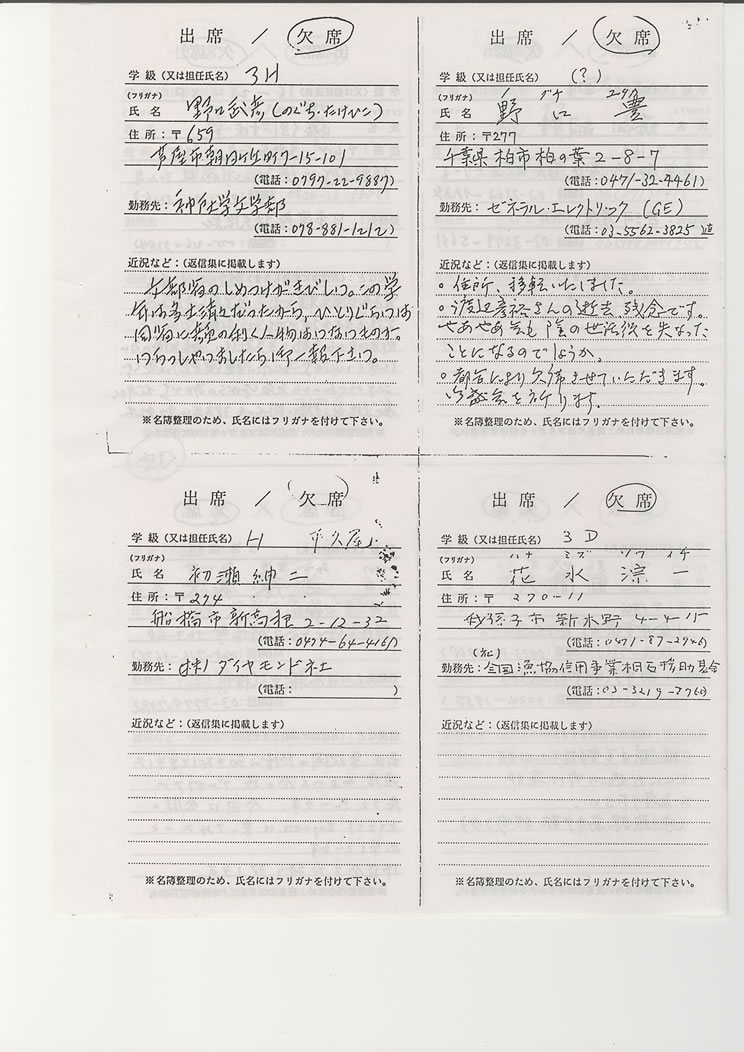 出 席 ／ 欠 席
学 級 （又は担任氏名） 3H
（フリガナ）
氏 名 野口武彦(のぐち・たけひこ)
住 所：〒 659
芦屋市朝日ヶ丘町7-15-101
（電話：0797-22-9887）
勤務先：神戸大学文学部
（電話：078-881-1212）
近況など：（返信集に掲載します）
文部省のしめつけがきびしい。この学
年は多士済々だったから、ひとりぐらいは
同省に顔の利く人物はいないものか。
いらっしゃいましたら御一報下さい。
※名簿整理のため、氏名にはフリガナを付けて下さい。
出 席 ／ 欠 席
学 級 （又は担任氏名） （？）
（フリガナ） ノ グチ ユタカ
氏 名 野 口 豊
住 所：〒277
千葉県 柏市 柏の葉 2-8-7
（電話：0471-32-4461）
勤務先：ゼネラル・エレクトリック (GE)
（電話：03-5562-3825 直
近況など：（返信集に掲載します）
○ 住所、移転いたしました。
○ 渡辺彦裕さんの逝去、残念です。
やあやあ会も陰の世話役を失なった
ことになるのでしょうか。
○ 都合により欠席させていただきます。
ご盛会を祈ります。
※名簿整理のため、氏名にはフリガナを付けて下さい。
出 席 ／ 欠 席
学 級 （又は担任氏名） H
（フリガナ）
氏 名 初瀬紳二
住 所：〒 274
船橋市新高根 2-12-32
（電話：0474-64-4167）
勤務先：(株)ダイヤモンド
（電話： ）
近況など：（返信集に掲載します）
※名簿整理のため、氏名にはフリガナを付けて下さい。
出 席 ／ 欠 席
学 級 （又は担任氏名） 3 D
（フリガナ） ハナ ミズ
氏 名 花 水 涼 一
住 所：〒 270-11
我孫子市 新木野 4-4-15
（電話：0471-87-2946）
勤務先：全国漁協信用事業相互援助基金
（電話：03-3219-8760
近況など：（返信集に掲載します）
※名簿整理のため、氏名にはフリガナを付けて下さい。